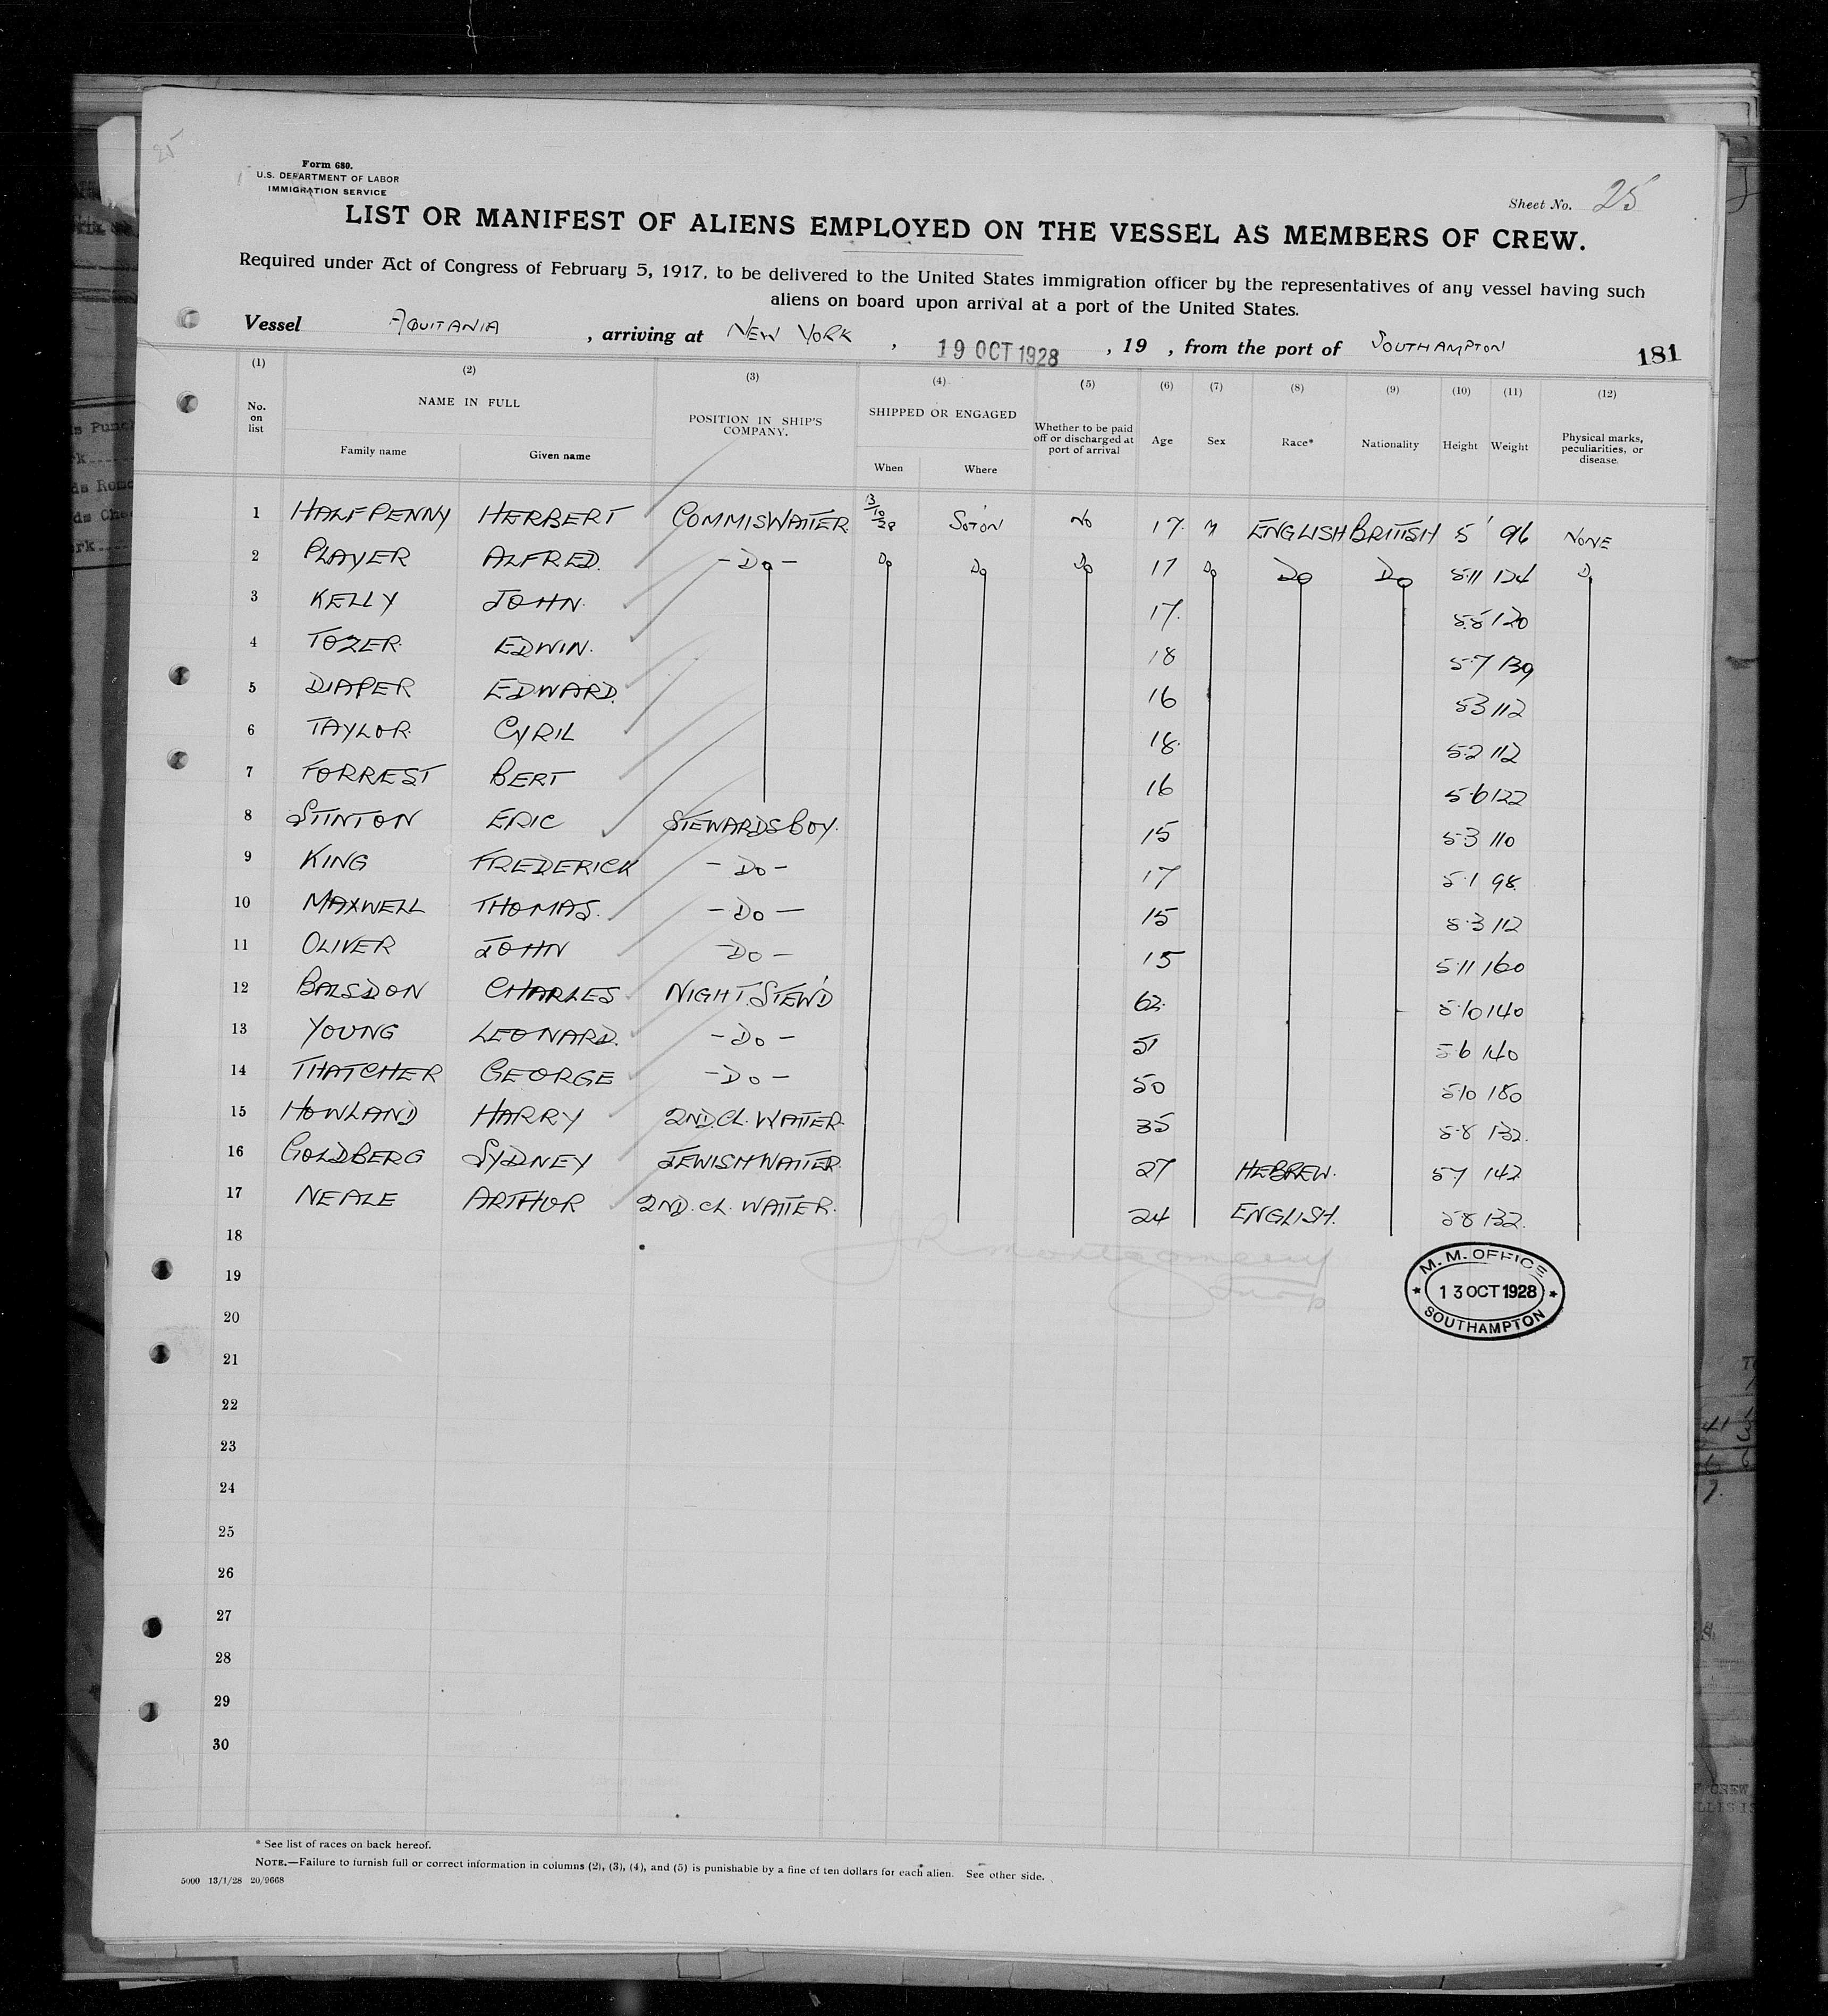 25
Form 680.
U.S. DEPARTMENT OF LABOR
IMMIGRATION SERVICE
Sheet No. 25
LIST OR MANIFEST OF ALIENS EMPLOYED ON THE VESSEL AS MEMBERS OF CREW.
Required under Act of Congress of February 5, 1917, to be delivered to the United States immigration officer by the representatives of any vessel having such
aliens on board upon arrival at a port of the United States.
Vessel AQUITANIA , arriving at NEW YORK , 19 OCT 1928 , 19 , from the port of SOUTHAMPTON 181
(1) (2) (3) (4) (5) (6) (7) (8) (9) (10) (11) (12)
No. on list NAME IN FULL Family name Given name POSITION IN SHIP'S COMPANY. SHIPPED OR ENGAGED When Where Whether to be paid off or discharged at port of arrival Age Sex Race* Nationality Height Weight Physical marks, peculiarities, or disease.
1 HALFPENNY HERBERT COMMIS WAITER 13/10/28 SOTON NO 17. M ENGLISH BRITISH 5' 96 NONE
2 PLAYER ALFRED. - DO - DO DO DO 17 DO DO DO 5.11 124 D
3 KELLY JOHN. 17. 5.5 120
4 TOZER. EDWIN. 18 5.7 139
5 DIAPER EDWARD. 16 5.3 112
6 TAYLOR. CYRIL 18. 5.2 112
7 FORREST BERT 16 5.6 122
8 STINTON ERIC STEWARDS BOY. 15 5.3 110
9 KING FREDERICK - DO - 17 5.1 98.
10 MAXWELL THOMAS. - DO - 15 5.3 112
11 OLIVER JOHN - DO - 15 5.11 160
12 BALSDON CHARLES NIGHT. STEW'D 62. 5.10 140
13 YOUNG LEONARD. - DO - 51 5.6 140
14 THATCHER GEORGE - DO - 50 5.10 180
15 HOWLAND HARRY 2ND. CL. WAITER. 35 5.8 132.
16 GOLDBERG SYDNEY JEWISH WAITER. 27 HEBREW. 5.7 142
17 NEALE ARTHUR 2ND. CL. WAITER. 24 ENGLISH. 5.8 132.
18
JR Montgomery
19
20
M. M. OFFICE
13 OCT 1928
SOUTHAMPTON
21
22
23
24
25
26
27
28
29
30
* See list of races on back hereof.
NOTE.—Failure to furnish full or correct information in columns (2), (3), (4), and (5) is punishable by a fine of ten dollars for each alien. See other side.
5000 13/1/28 20/9668